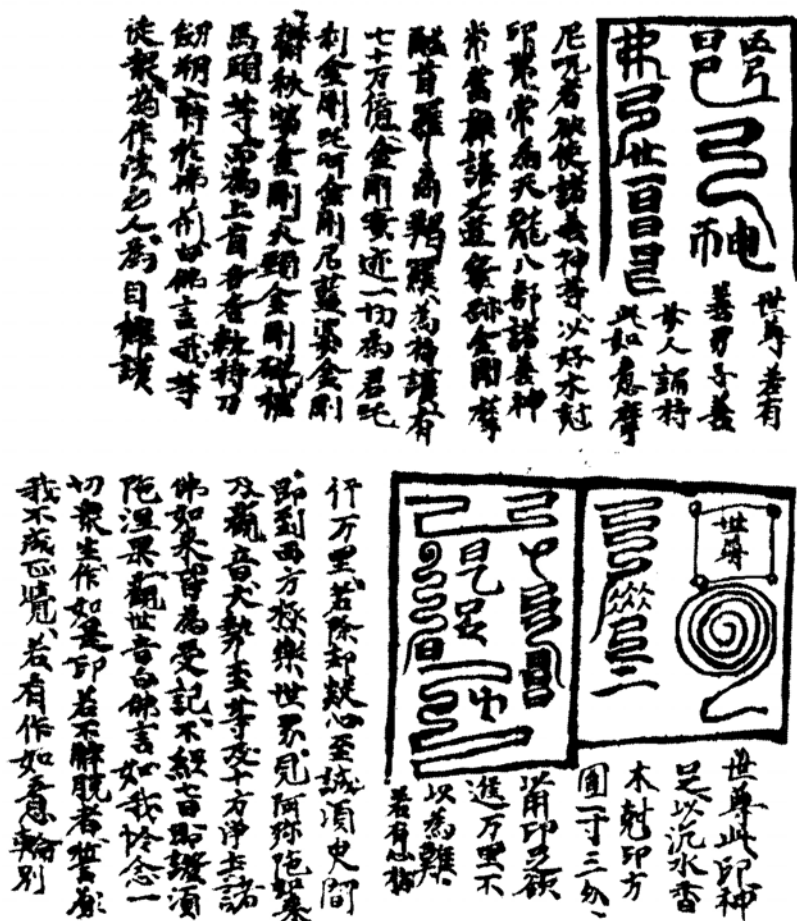 世尊若有
善男子善
女人誦持
此如意摩
尼咒者欲使諸善神等以好木尅
印帶常為天龍八部諸善神
常當雍護之並密跡金剛摩
醯首羅羯羅為擁護有
七十万億金剛密迹一切為君吒
利金剛吒訶金剛尼藍婆金剛
金剛大頭金剛碎
馬頭等而為上首各各執持刀
劒於佛前白佛言我等
徒眾為作法之人為自擁護
世尊
世尊此印神
足以沉水香
木尅印方
圓一寸三分
以用印足欲
進万里不
以為難
若有心
行万里若除却疑心至誠須臾間
即到西方極樂世界見阿弥陁如來
及觀音大勢至等及十方淨土諸
佛如來皆為受記不經七日即證須
陁洹果觀世音白佛言如我怜念一
切眾生作如是印若不解脫者誓願
我不成正覺若有作如意輪別